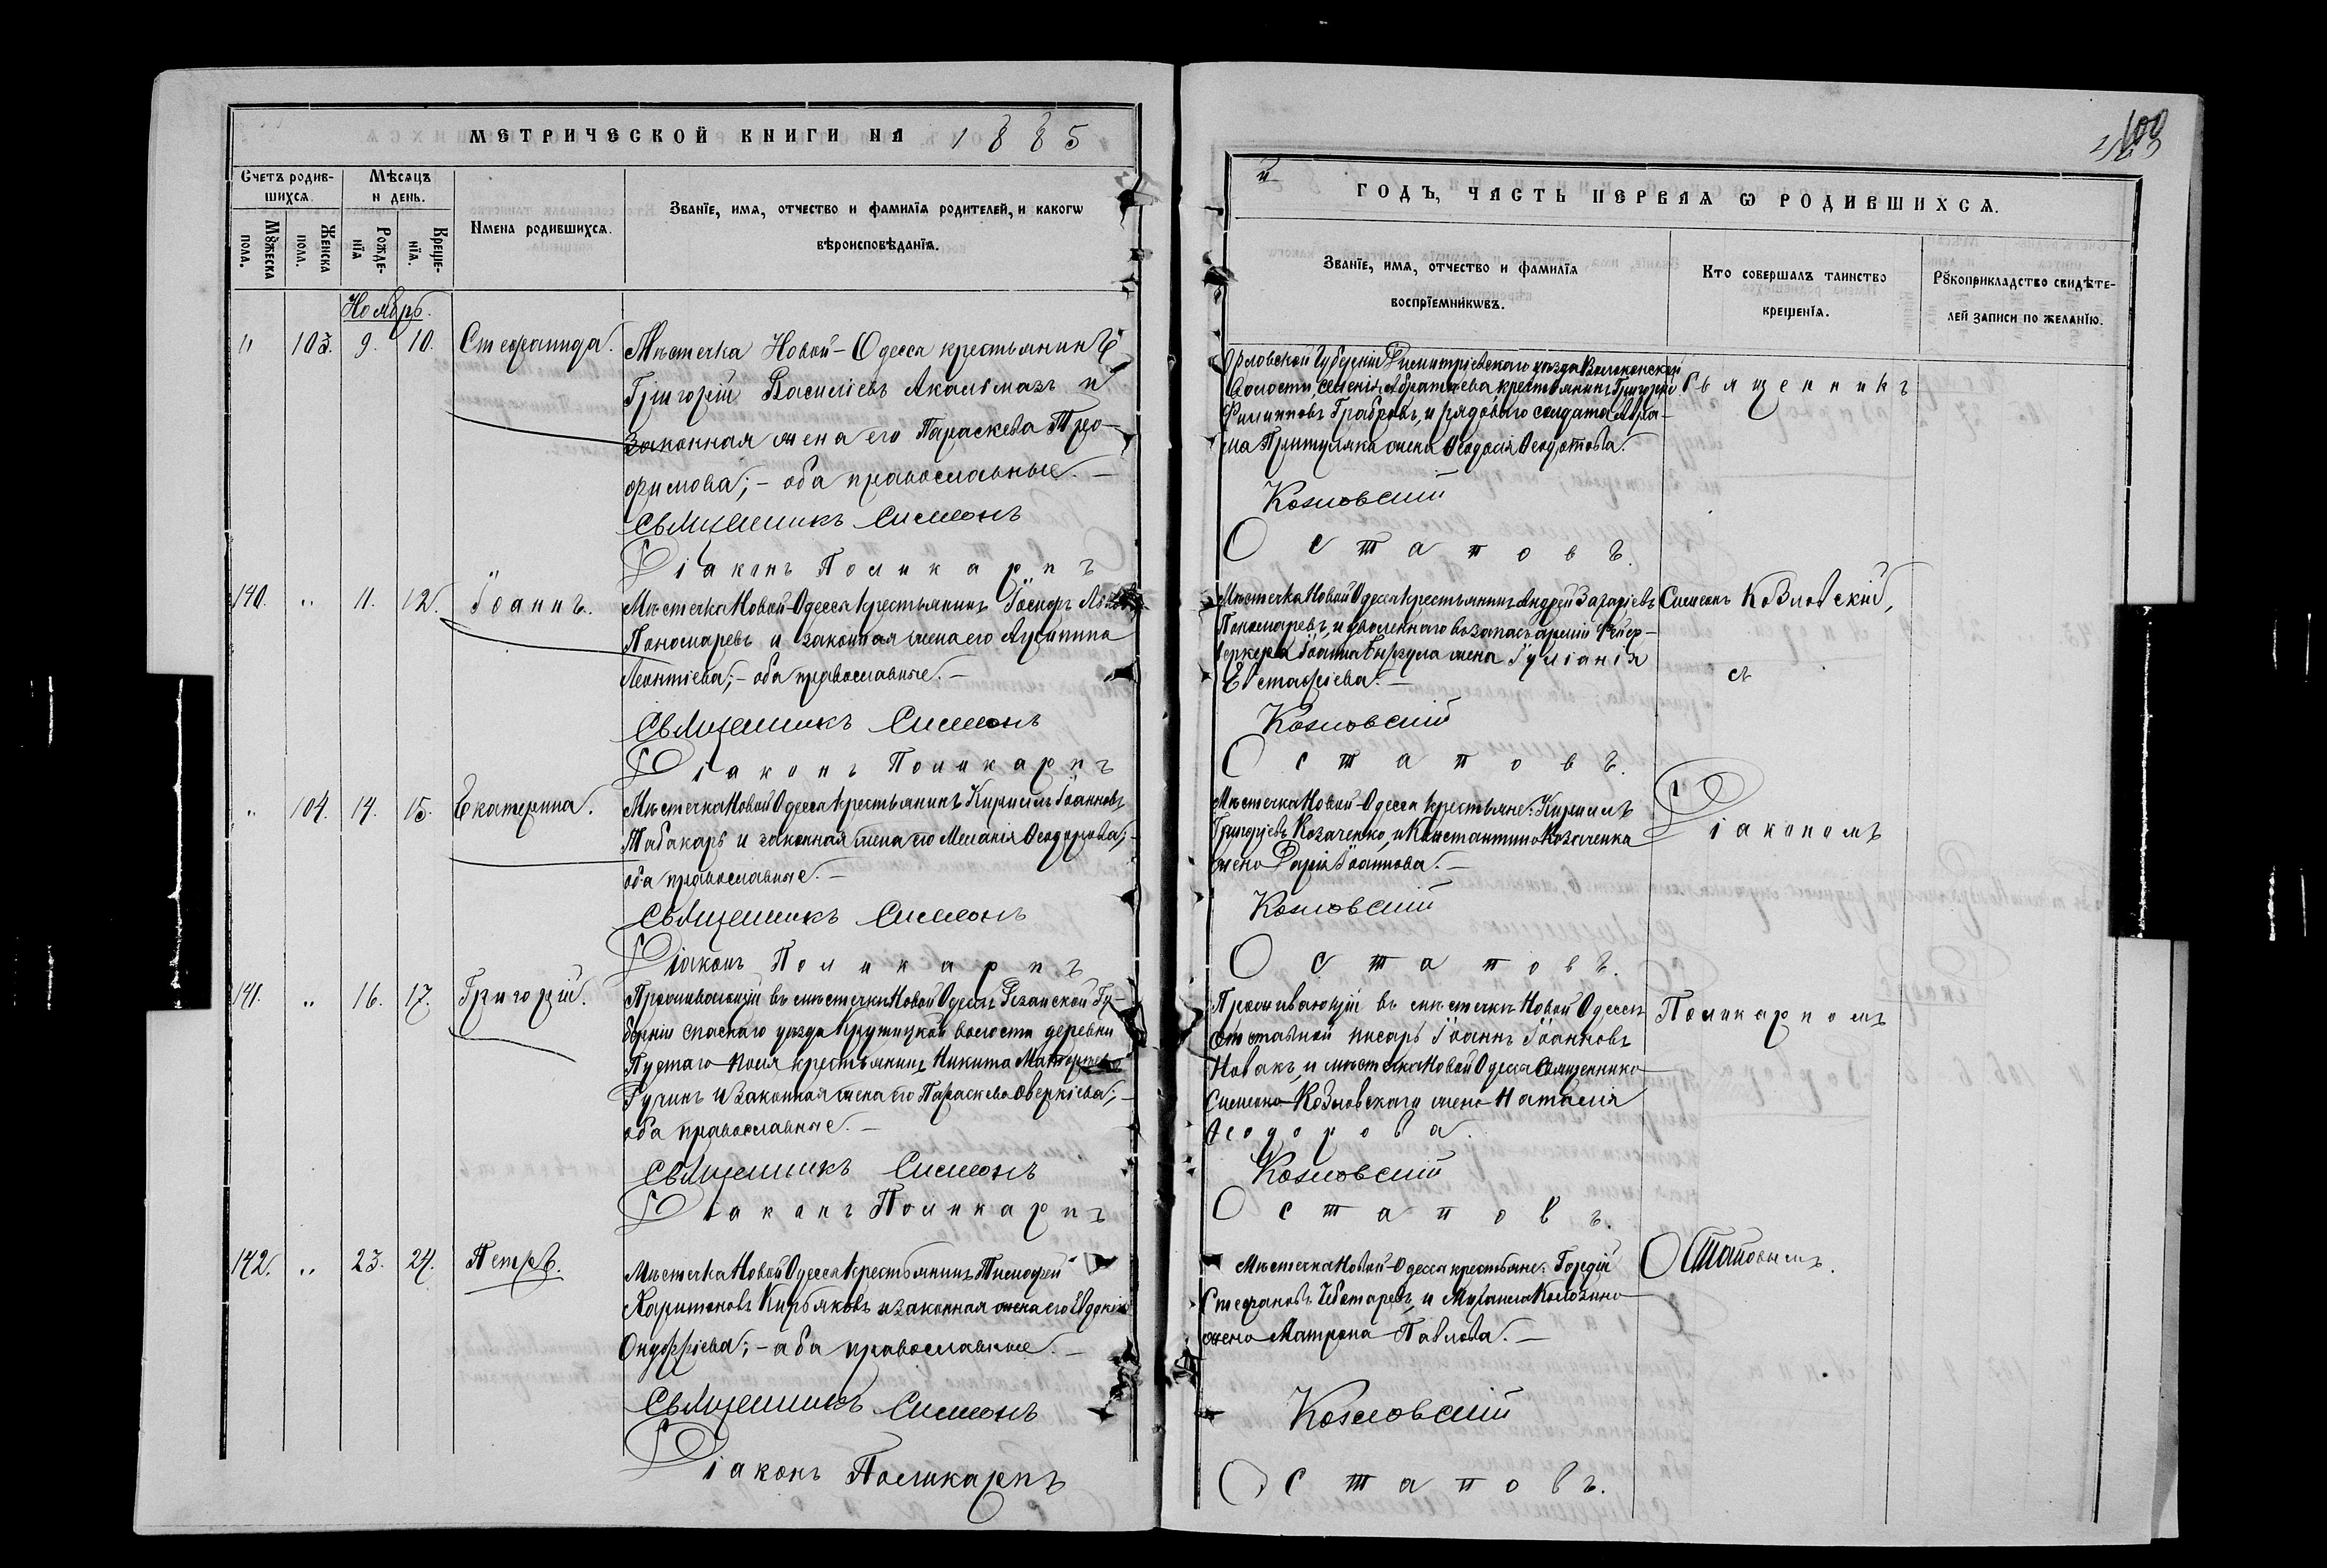 МЕТРИЧЕСКОЙ КНИГИ НА 1885
Счетъ родив-
шихся.
Мѣсяцъ
и день.
Имена родившихся.
Званїе, имя, отчество и фамилїя родителей, и какогѡ
вѣроисповѣданїя.
Мꙋжеска
пола.
Женска
пола.
Рожде-
нїя
Креще-
нїя.
Ноябрь.
" 103. 9. 10. Стефанида.
Мѣстечка Новой-Одесса крестьянинъ
Григорій Василіевъ Акалѣмазъ и
законная жена его Параскева Тро-
фимова; - оба православные. -
Священникъ Симеонъ
Діаконъ Поликарпъ
140. " 11. 12. Іоаннъ.
Мѣстечка Новой-Одесса крестьянинъ Іосифъ
Пономаревъ и законная жена его Агрипина
Леонтіева; - оба православные. -
Священникъ Симеонъ
Діаконъ Поликарпъ
" 104. 14. 15. Екатерина.
Мѣстечка Новой Одесса крестьянинъ Кириллъ Іоанновъ
Табакарь и законная жена его Меланія Ѳеодорова; -
оба православные. -
Священникъ Симеонъ
Діаконъ Поликарпъ
141. " 16. 17. Григорій.
Проживающій въ мѣстечкѣ Новой Одессѣ Резанской Гу-
берніи Спаскаго уѣзда Крутицкой волости деревни
Пустаго Поля крестьянинъ Никита
Гучинъ и законная жена его Параскева Оверкіева; -
оба православные. -
Священникъ Симеонъ
Діаконъ Поликарпъ
142. " 23. 24. Петръ.
Мѣстечка Новой Одесса крестьянинъ Тимофей
Харитоновъ Кирьяковъ и законная жена его Евдокія
Онуфріева; - оба православные. -
Священникъ Симеонъ
Діаконъ Поликарпъ
й
ГОДЪ, ЧАСТЬ ПЕРВАЯ Ѡ РОДИВШИХСЯ.
Званїе, имя, отчество и фамилїя
воспрїемникѡвъ.
Кто совершалъ таинство
крещенїя.
Рꙋкоприкладство свидѣте-
лей записи по желанїю.
Орловской Губерніи Димитріевскаго уѣзда
Волости, крестьянинъ Григорій
Филипповъ Грабровъ, и рядоваго солдата Авра-
ама Притуляка жена Ѳеодосія Ѳеодотова.
Козловскій
Остаповъ.
Мѣстечка Новой Одесса крестьянинъ Андрей Захаріевъ
Пономаревъ, и уволеннаго въ запасъ арміи Фейер-
веркера Іоанна жена Іуліанія
Евстафіева. -
Козловскій
Остаповъ.
Мѣстечка Новой-Одесса крестьяне: Кириллъ
Григорієвъ Козаченко, и Константина Козаченка
жена Дарія Іоаннова. -
Козловскій
Остаповъ.
Проживающій въ мѣстечкѣ Новой Одессѣ
отставной писарь Іоаннъ Іоанновъ
Новакъ, и мѣстечка Новой Одесса Священника
Симеона Козловскаго жена Наталія
Ѳеодорова.
Козловскій
Остаповъ.
Мѣстечка Новой-Одесса крестьяне: Гордій
Стефановъ Чеботаревъ, и Михаила Колозина
жена Матрона Павлова. -
Козловскій
Остаповъ.
Священникъ
Симеонъ Козловскій,
съ
Діакономъ
Поликарпомъ
Остаповымъ.